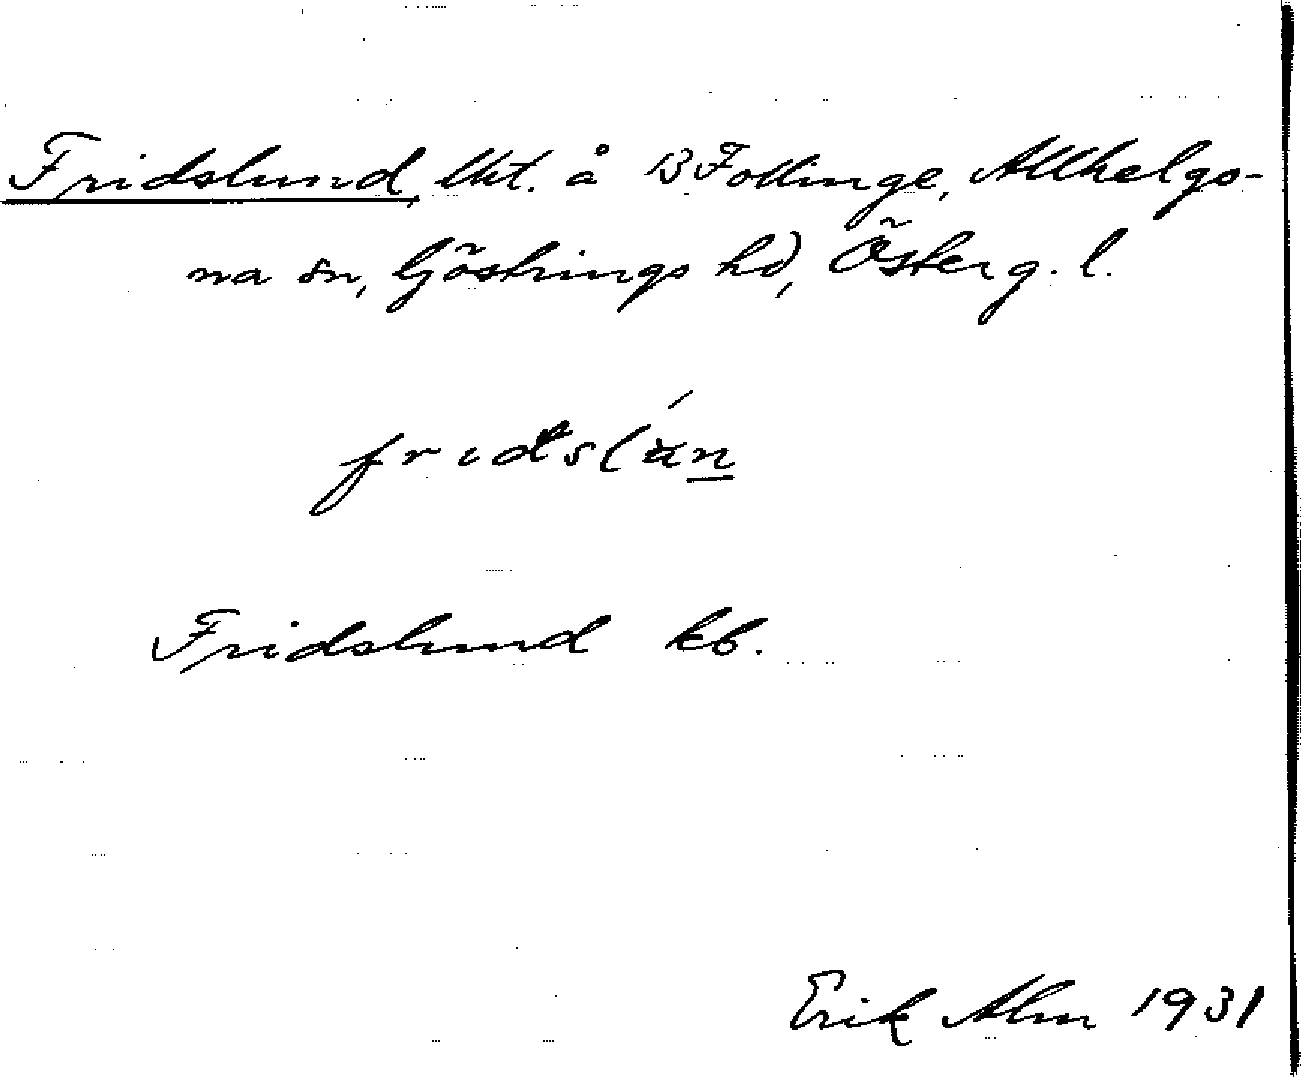 Fridslund, lht. å B Follinge, Allhelgo-
na sn, Göstrings hd, Österg. l.
fridslún
Fridslund kb.
Erik Alm 1931